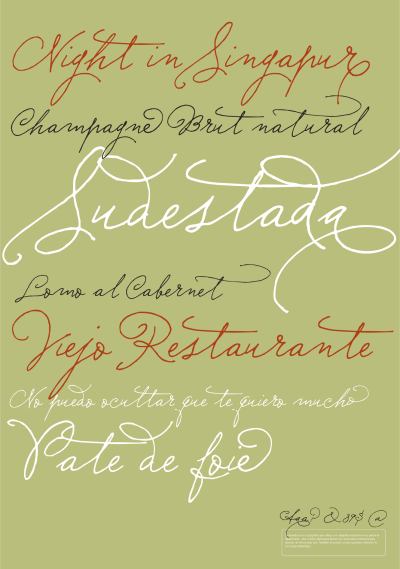 Night in Singapur
Champagne Brut natural
Sudestada
Lomo al Cabernet
Viejo Restaurante
No puedo ocultar que te quiero mucho
Pate de foie